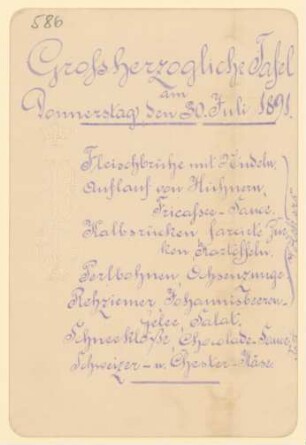 586
Großherzogliche Tafel
am
Donnerstag, den 30. Juli 1891.
Fleischbrühe mit Nudeln.
Auflauf von Hühnern,
Fricassee-Sauce.
Kalbsrücken farcirte Gur-
ken Kartoffeln.
Perlbohnen Ochsenzunge
Rehziemer Johannisbeeren-
gelee, Salat.
Schneeklöße, Chocolade-Sauce
Schweizer- u. Chester-Käse